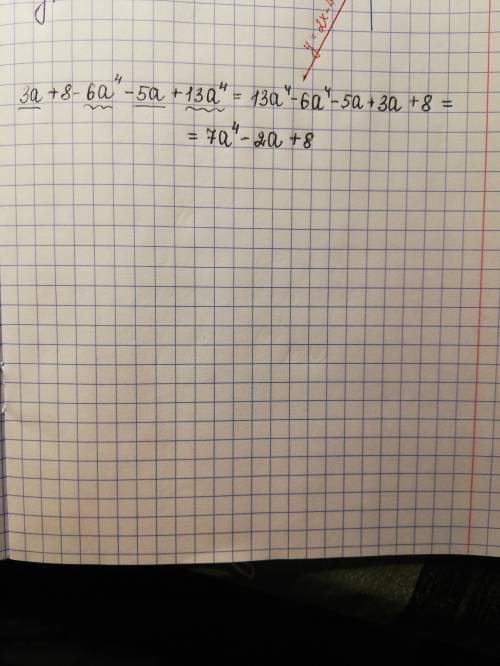 y = 2x - 4
3a + 8 - 6a⁴ - 5a + 13a⁴ = 13a⁴ - 6a⁴ - 5a + 3a + 8 =
= 7a⁴ - 2a + 8